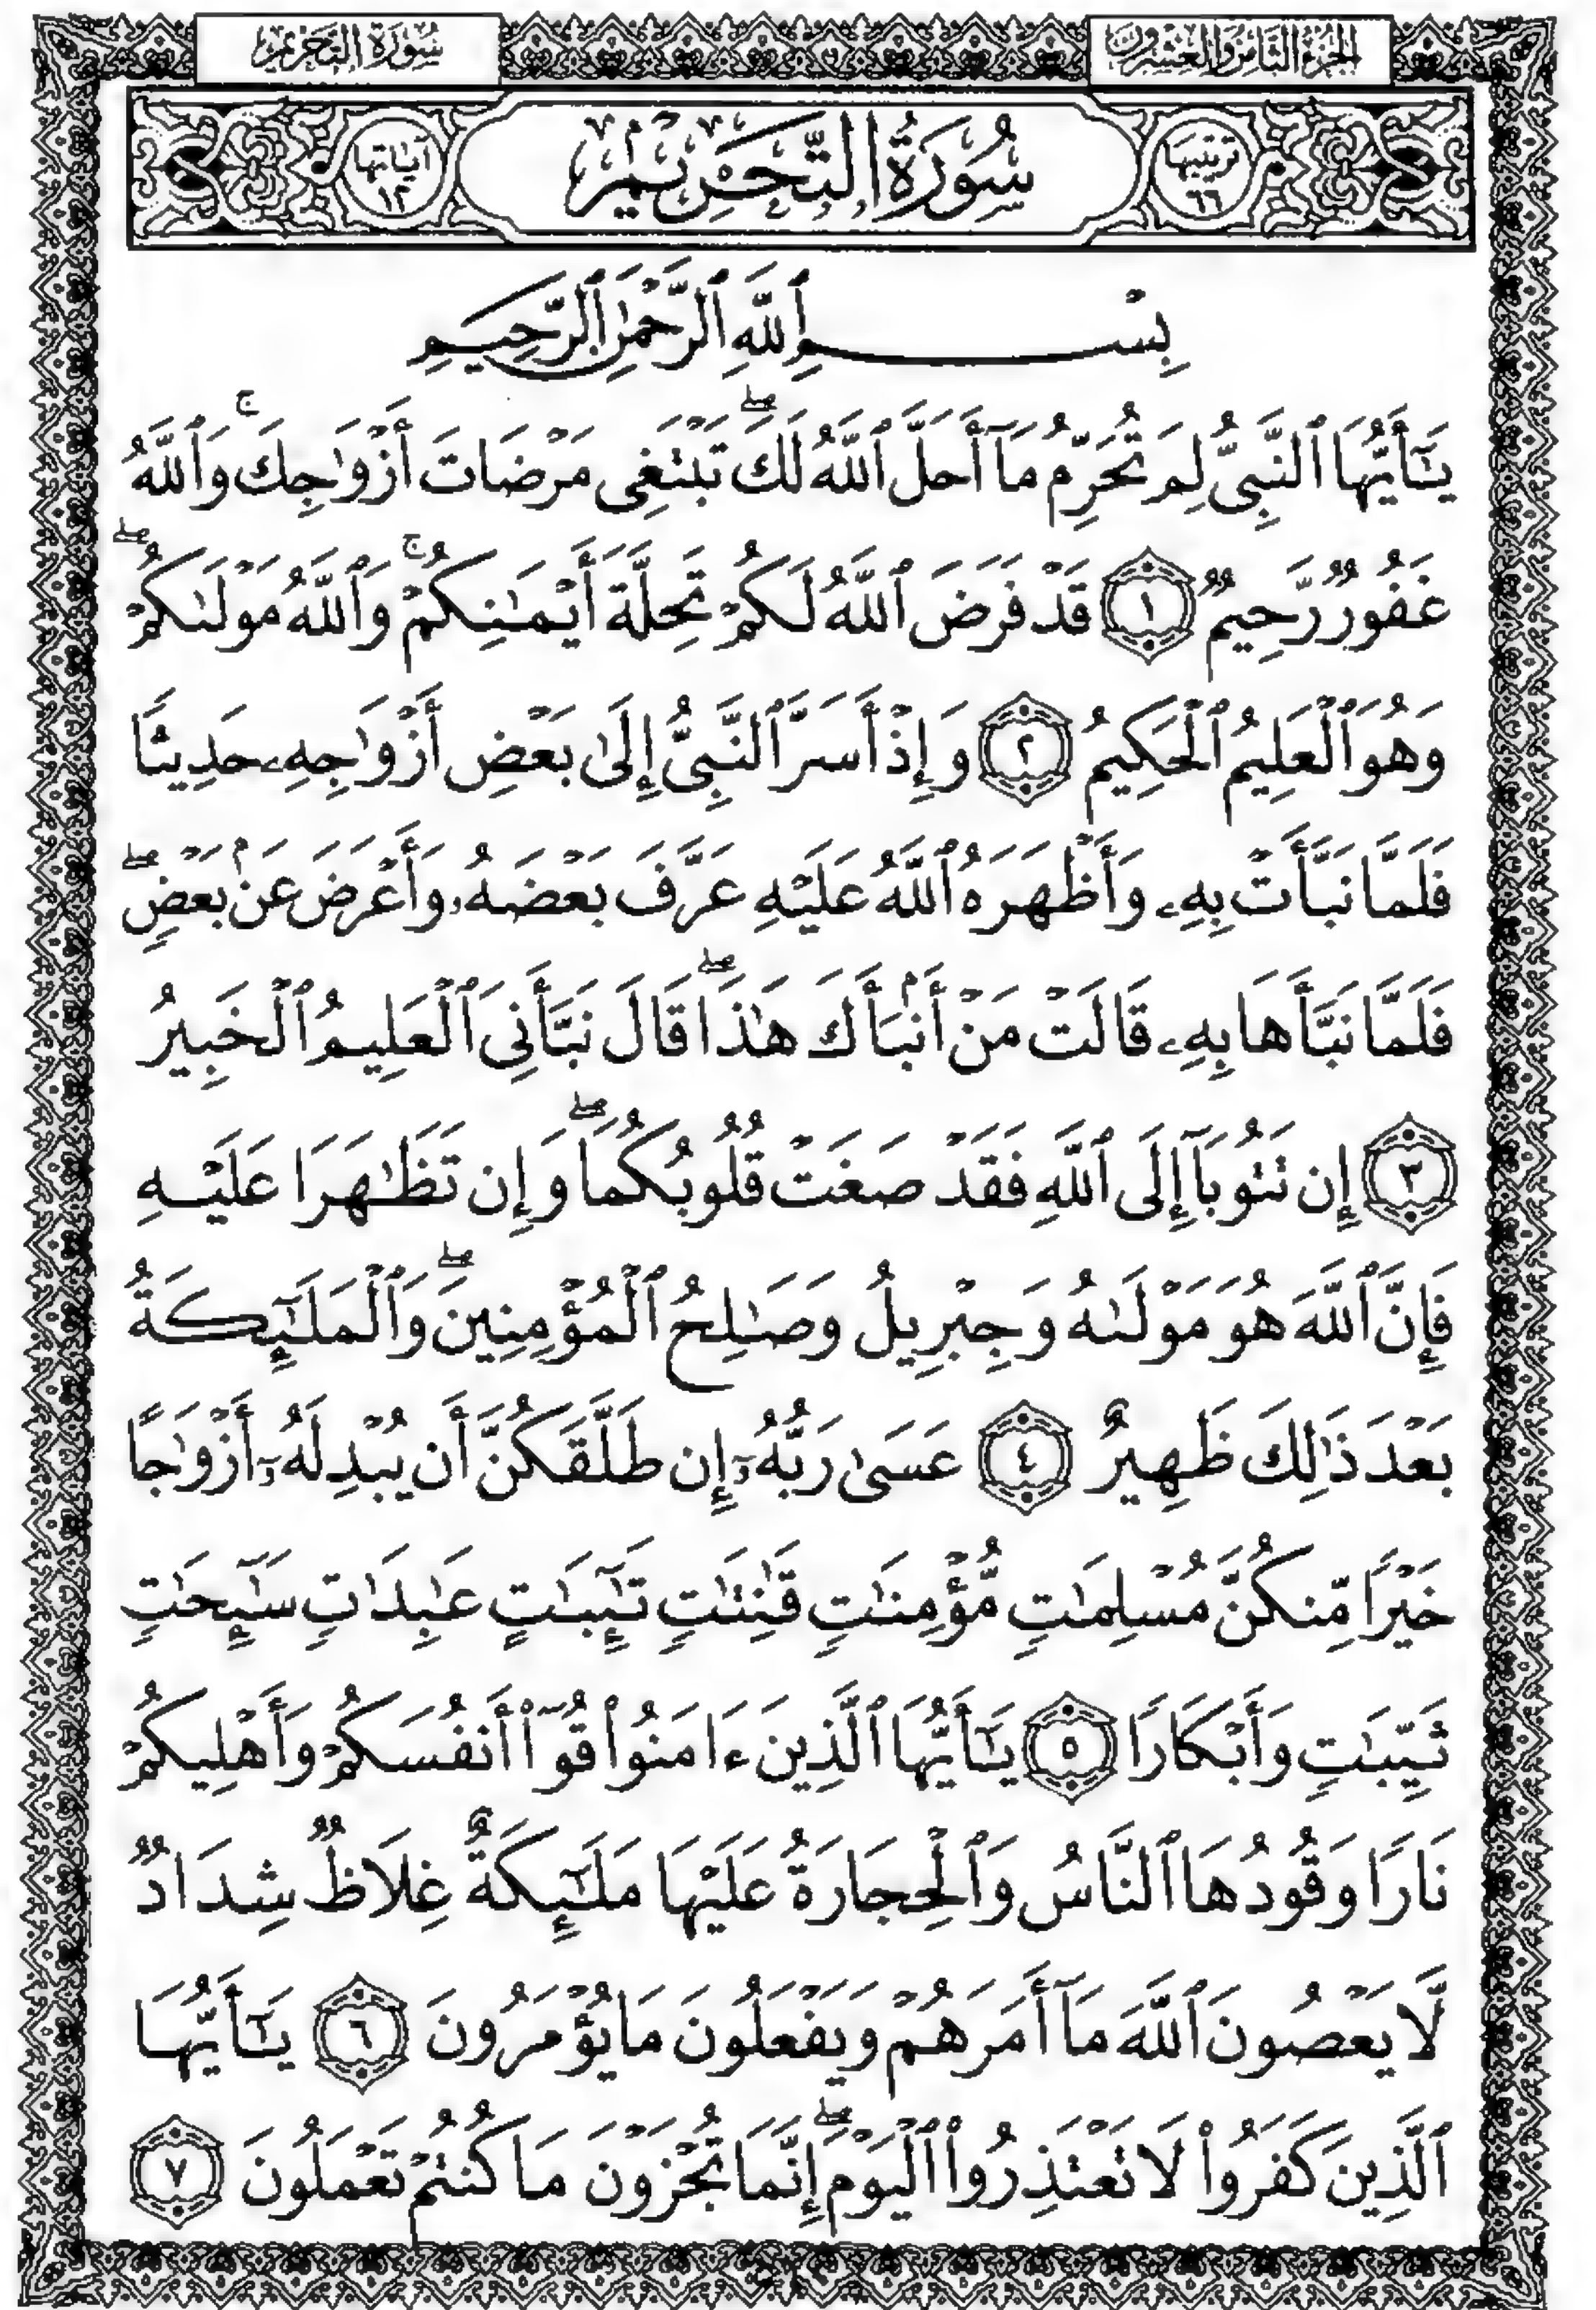 الجزء الثامن والعشرون
سورة التحريم
ترتيبها ٦٦
سُورَةُ التَّحْرِيمِ
آياتها ١٢
بِسْمِ ٱللَّهِ ٱلرَّحْمَٰنِ ٱلرَّحِيمِ
يَـٰٓأَيُّهَا ٱلنَّبِىُّ لِمَ تُحَرِّمُ مَآ أَحَلَّ ٱللَّهُ لَكَ ۖ تَبْتَغِى مَرْضَاتَ أَزْوَٰجِكَ ۚ وَٱللَّهُ
غَفُورٌ رَّحِيمٌ ١ قَدْ فَرَضَ ٱللَّهُ لَكُمْ تَحِلَّةَ أَيْمَـٰنِكُمْ ۚ وَٱللَّهُ مَوْلَىٰكُمْ ۖ
وَهُوَ ٱلْعَلِيمُ ٱلْحَكِيمُ ٢ وَإِذْ أَسَرَّ ٱلنَّبِىُّ إِلَىٰ بَعْضِ أَزْوَٰجِهِۦ حَدِيثًا
فَلَمَّا نَبَّأَتْ بِهِۦ وَأَظْهَرَهُ ٱللَّهُ عَلَيْهِ عَرَّفَ بَعْضَهُۥ وَأَعْرَضَ عَنۢ بَعْضٍ ۖ
فَلَمَّا نَبَّأَهَا بِهِۦ قَالَتْ مَنْ أَنۢبَأَكَ هَـٰذَا ۖ قَالَ نَبَّأَنِىَ ٱلْعَلِيمُ ٱلْخَبِيرُ
٣ إِن تَتُوبَآ إِلَى ٱللَّهِ فَقَدْ صَغَتْ قُلُوبُكُمَا ۖ وَإِن تَظَـٰهَرَا عَلَيْهِ
فَإِنَّ ٱللَّهَ هُوَ مَوْلَىٰهُ وَجِبْرِيلُ وَصَـٰلِحُ ٱلْمُؤْمِنِينَ ۖ وَٱلْمَلَـٰٓئِكَةُ
بَعْدَ ذَٰلِكَ ظَهِيرٌ ٤ عَسَىٰ رَبُّهُۥٓ إِن طَلَّقَكُنَّ أَن يُبْدِلَهُۥٓ أَزْوَٰجًا
خَيْرًا مِّنكُنَّ مُسْلِمَـٰتٍ مُّؤْمِنَـٰتٍ قَـٰنِتَـٰتٍ تَـٰٓئِبَـٰتٍ عَـٰبِدَٰتٍ سَـٰٓئِحَـٰتٍ
ثَيِّبَـٰتٍ وَأَبْكَارًا ٥ يَـٰٓأَيُّهَا ٱلَّذِينَ ءَامَنُوا۟ قُوٓا۟ أَنفُسَكُمْ وَأَهْلِيكُمْ
نَارًا وَقُودُهَا ٱلنَّاسُ وَٱلْحِجَارَةُ عَلَيْهَا مَلَـٰٓئِكَةٌ غِلَاظٌ شِدَادٌ
لَّا يَعْصُونَ ٱللَّهَ مَآ أَمَرَهُمْ وَيَفْعَلُونَ مَا يُؤْمَرُونَ ٦ يَـٰٓأَيُّهَا
ٱلَّذِينَ كَفَرُوا۟ لَا تَعْتَذِرُوا۟ ٱلْيَوْمَ ۖ إِنَّمَا تُجْزَوْنَ مَا كُنتُمْ تَعْمَلُونَ ٧